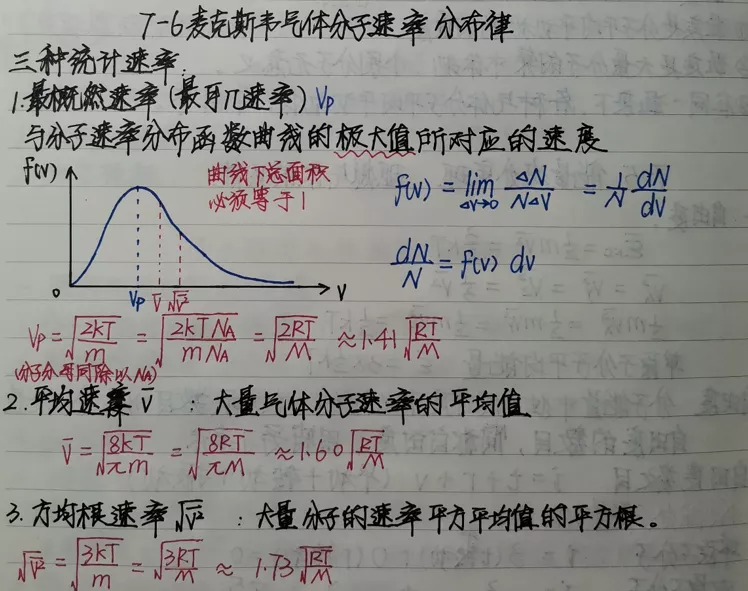 7-6麦克斯韦气体分子速率分布律
三种统计速率:
1.最概然速率(最可几速率) Vp
与分子速率分布函数曲线的极大值所对应的速度
f(v)
曲线下总面积
必须等于1
0 Vp v̄ √v̄² V
f(v) = lim Δv→0 ΔN/NΔV = 1/N dN/dV
dN/N = f(v) dv
Vp = √(2kT/m) = √(2kTNA/mNA) = √(2RT/M) ≈1.41 √(RT/M)
(分子分母同除以NA)
2.平均速率 v̄ : 大量气体分子速率的平均值
v̄ = √(8kT/πm) = √(8RT/πM) ≈1.60 √(RT/M)
3.方均根速率 √v̄² : 大量分子的速率平方平均值的平方根。
√v̄² = √(3kT/m) = √(3RT/M) ≈ 1.73 √(RT/M)